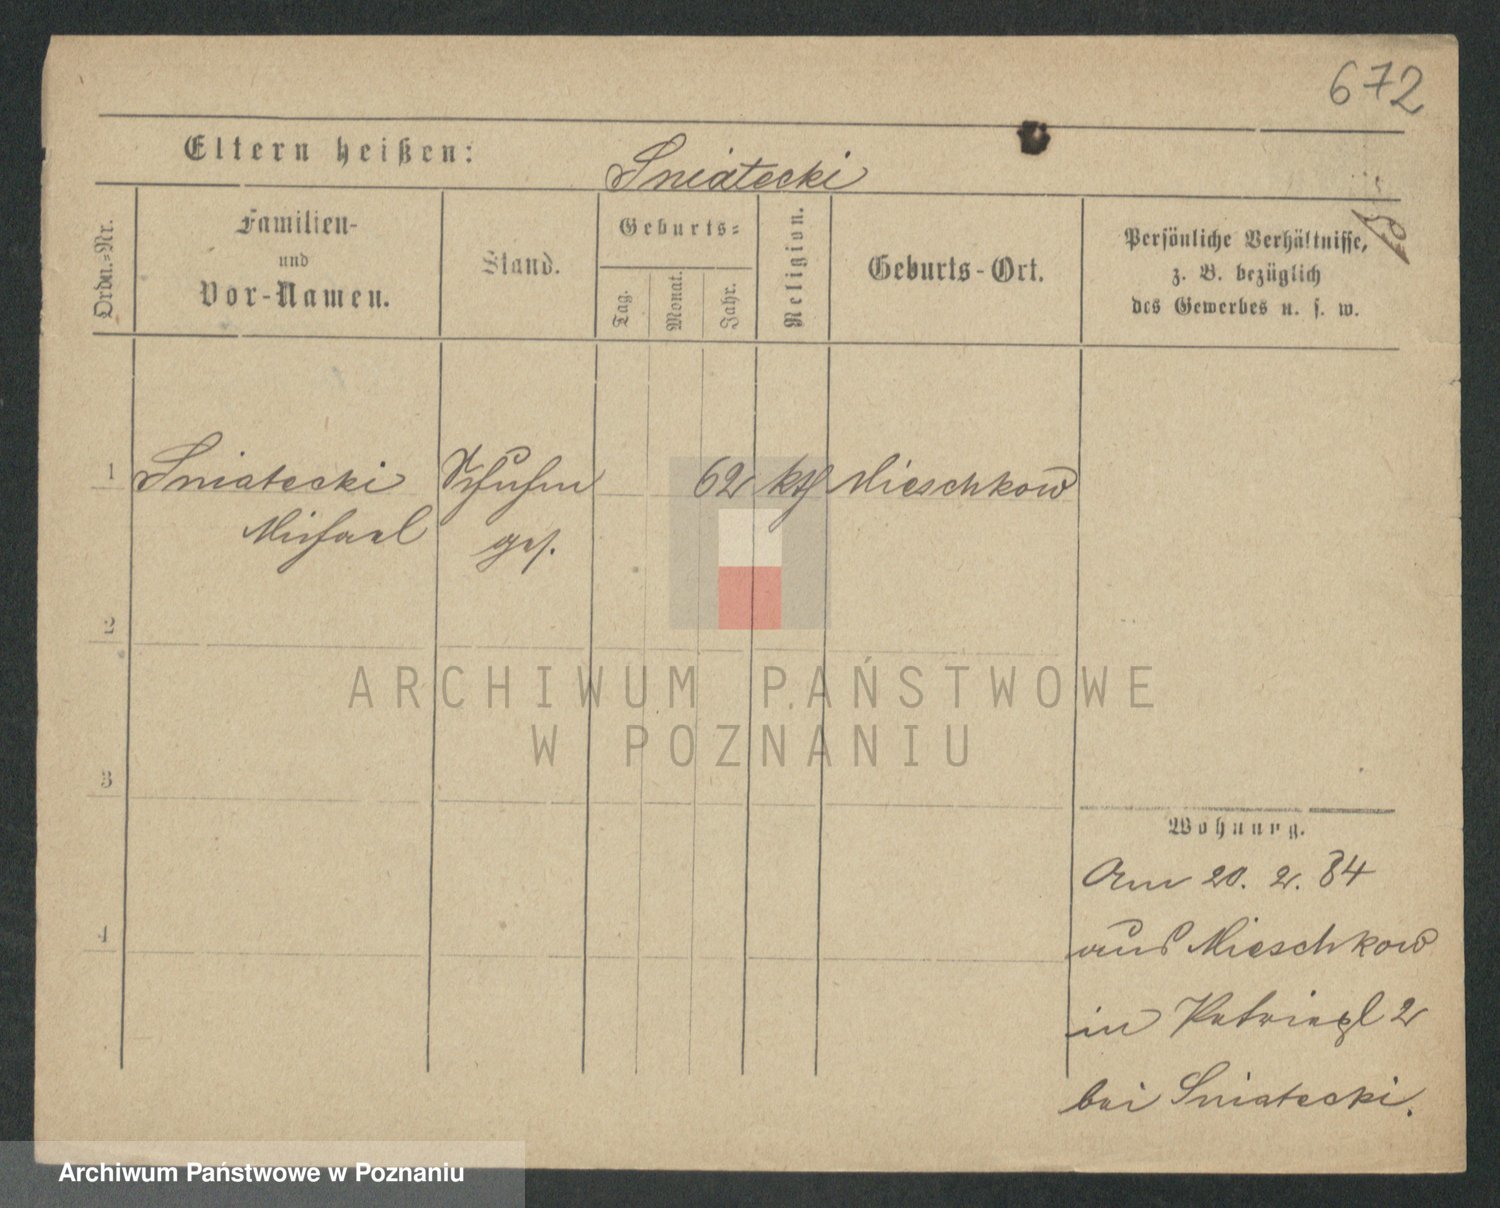 672
Eltern heißen: Sniatecki
Ordn.-Nr.
Familien-
und
Vor-Namen.
Stand.
Geburts-
Tag.
Monat.
Jahr.
Religion.
Geburts-Ort.
Persönliche Verhältnisse,
z. B. bezüglich
des Gewerbes u. s. w.
1 Sniatecki Schuhm 62 kth Mieschkow
Michael ges.
2
3
4
ARCHIWUM PAŃSTWOWE
W POZNANIU
Wohnung.
Am 20. 2. 84
aus Mieschkow
in Petripl 2
bei Sniatecki.
Archiwum Państwowe w Poznaniu